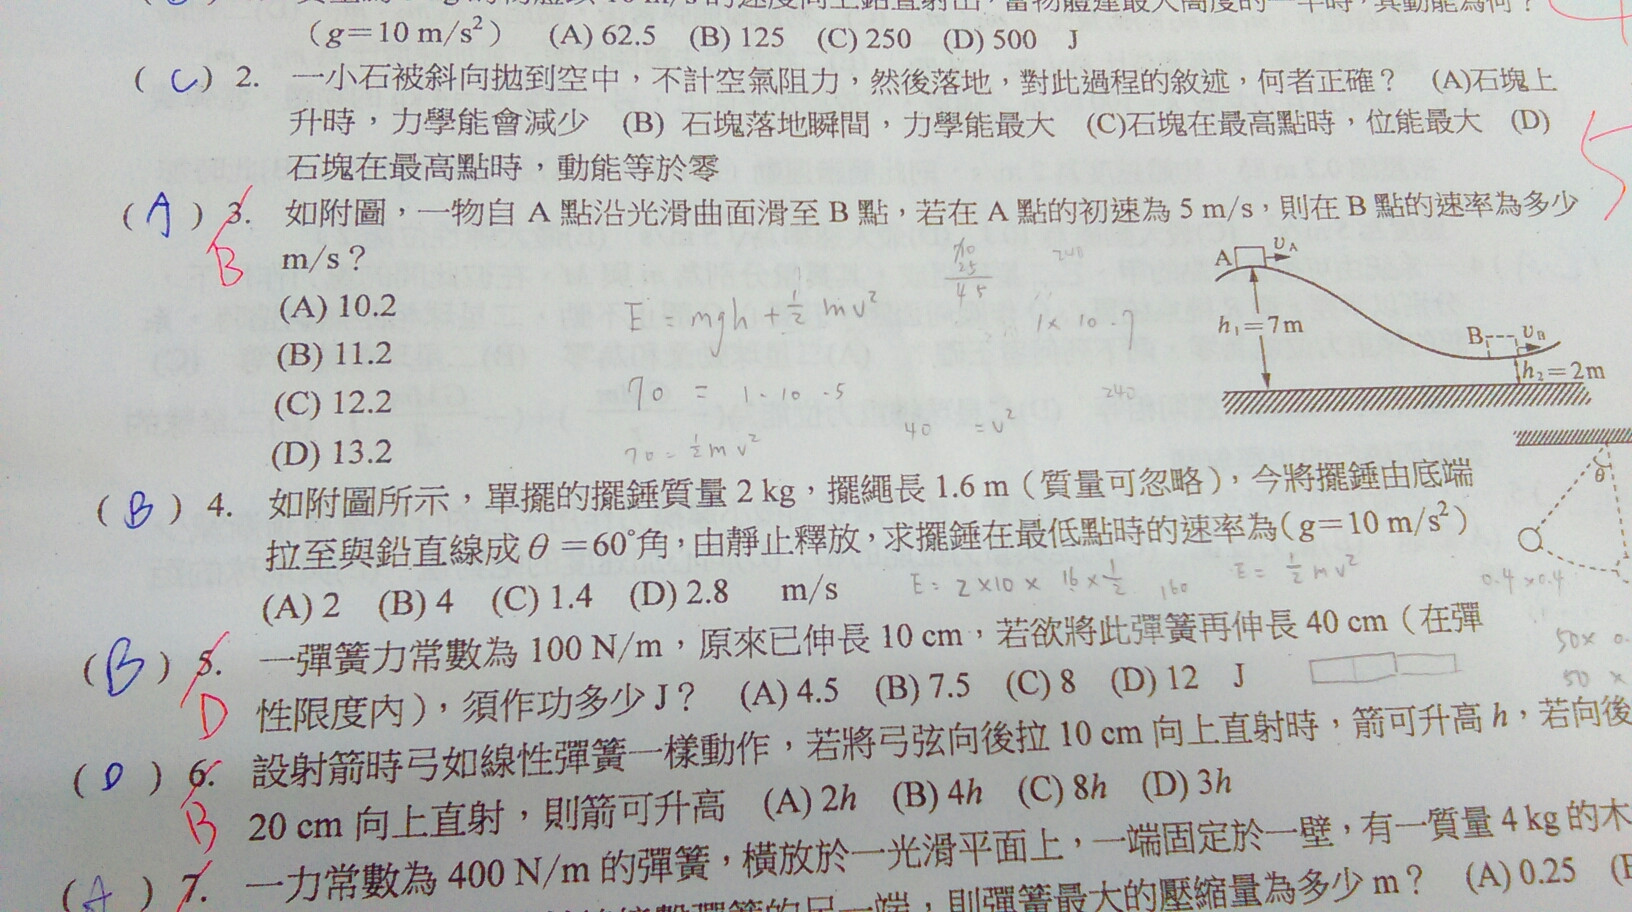 的速度向上鉛直射出，當物體達最大高度的一半時，其動能為何？
（g＝10 m/s²） (A) 62.5 (B) 125 (C) 250 (D) 500 J
( C ) 2. 一小石被斜向拋到空中，不計空氣阻力，然後落地，對此過程的敘述，何者正確？ (A)石塊上
升時，力學能會減少 (B) 石塊落地瞬間，力學能最大 (C)石塊在最高點時，位能最大 (D)
石塊在最高點時，動能等於零
( A ) 3. 如附圖，一物自 A 點沿光滑曲面滑至 B 點，若在 A 點的初速為 5 m/s，則在 B 點的速率為多少
B m/s？
(A) 10.2
(B) 11.2
(C) 12.2
(D) 13.2
70
25
45
240
E = mgh + ½ mv²
1×10.7
70 = 1.10.5
40 = v²
240
70 = ½mv²
A
υA
h₁＝7m
B
υB
h₂＝2m
( B ) 4. 如附圖所示，單擺的擺錘質量 2 kg，擺繩長 1.6 m（質量可忽略），今將擺錘由底端
拉至與鉛直線成 θ＝60°角，由靜止釋放，求擺錘在最低點時的速率為（g＝10 m/s²）
(A) 2 (B) 4 (C) 1.4 (D) 2.8 m/s
E = 2×10×16×½ 160 E = ½mv²
θ
0.4×0.4
( B ) 5. 一彈簧力常數為 100 N/m，原來已伸長 10 cm，若欲將此彈簧再伸長 40 cm（在彈
D 性限度內），須作功多少 J？ (A) 4.5 (B) 7.5 (C) 8 (D) 12 J
50× 0.
50 ×
( D ) 6. 設射箭時弓如線性彈簧一樣動作，若將弓弦向後拉 10 cm 向上直射時，箭可升高 h，若向後
B 20 cm 向上直射，則箭可升高 (A) 2h (B) 4h (C) 8h (D) 3h
( A ) 7. 一力常數為 400 N/m 的彈簧，橫放於一光滑平面上，一端固定於一壁，有一質量 4 kg 的木
彈簧的另一端，則彈簧最大的壓縮量為多少 m？ (A) 0.25